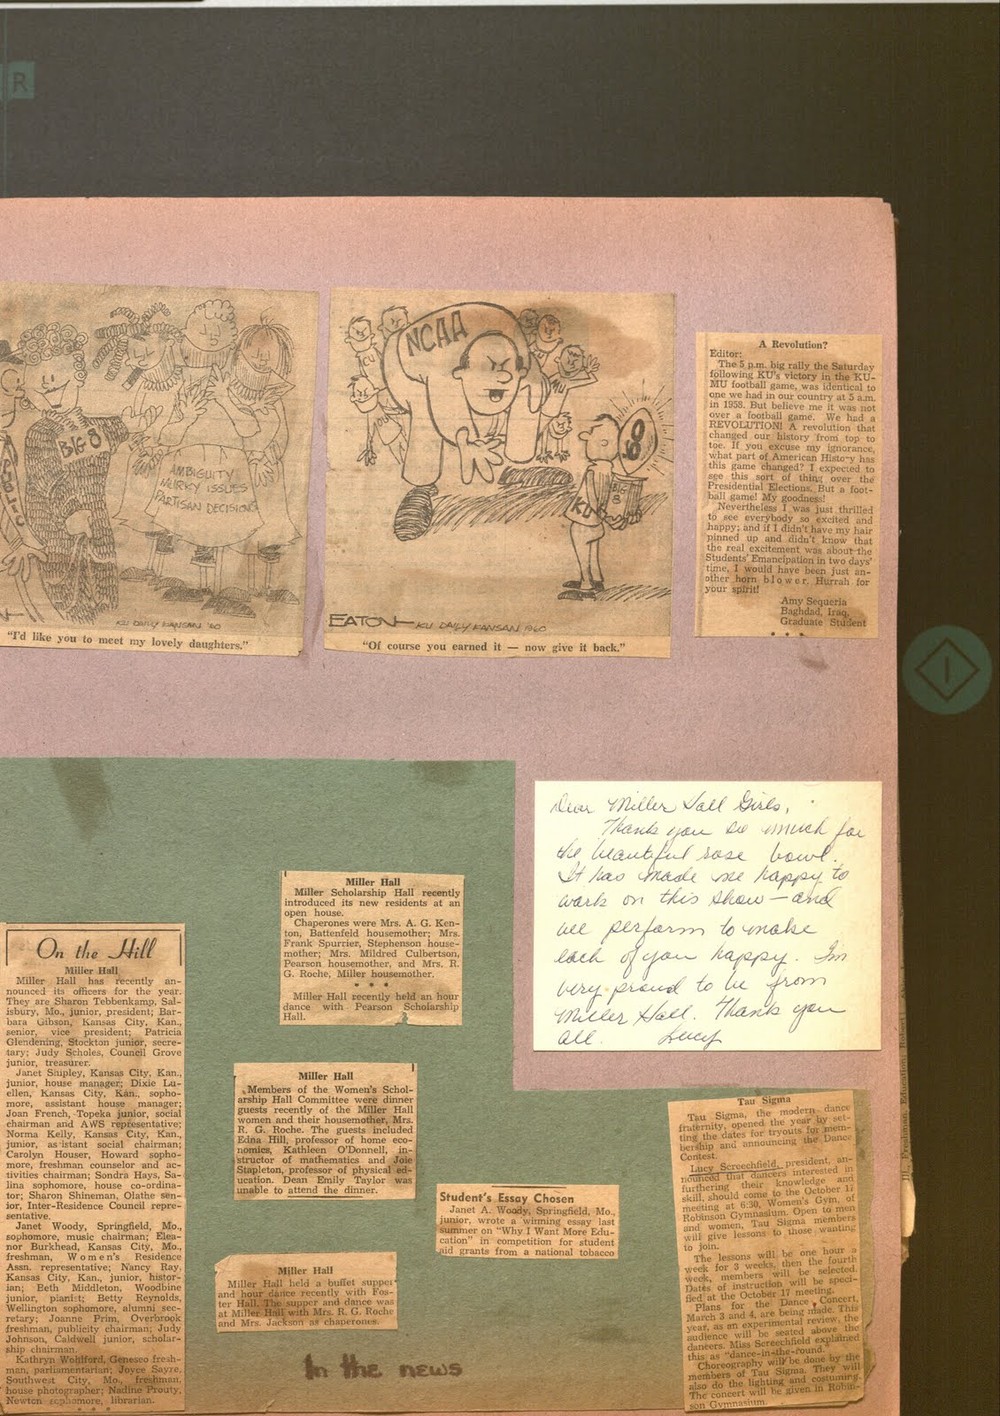 R
BIG 8
AMBIGUITY
MURKY ISSUES
PARTISAN DECISIONS
KU DAILY KANSAN '60
"I'd like you to meet my lovely daughters."
NCAA
CU
8
0
BIG
8
KU
EATON KU DAILY KANSAN 1960
"Of course you earned it — now give it back."
A Revolution?
Editor:
The 5 p.m. big rally the Saturday
following KU's victory in the KU-
MU football game, was identical to
one we had in our country at 5 a.m.
in 1958. But believe me it was not
over a football game. We had a
REVOLUTION! A revolution that
changed our history from top to
toe. If you excuse my ignorance,
what part of American History has
this game changed? I expected to
see this sort of thing over the
Presidential Elections. But a foot-
ball game! My goodness!
Nevertheless I was just thrilled
to see everybody so excited and
happy; and if I didn't have my hair
pinned up and didn't know that
the real excitement was about the
Students' Emancipation in two days'
time, I would have been just an-
other horn blower. Hurrah for
your spirit!
Amy Sequeria
Baghdad, Iraq,
Graduate Student
Dear Miller Hall Girls,
Thank you so much for
the beautiful rose bowl.
It has made me happy to
work on this show — and
we perform to make
each of you happy. I'm
very proud to be from
Miller Hall. Thank you
all. Lucy
On the Hill
Miller Hall
Miller Hall has recently an-
nounced its officers for the year.
They are Sharon Tebbenkamp, Sal-
isbury, Mo., junior, president; Bar-
bara Gibson, Kansas City, Kan.,
senior, vice president; Patricia
Glendening, Stockton junior, secre-
tary; Judy Scholes, Council Grove
junior, treasurer.
Janet Stupley, Kansas City, Kan.,
junior, house manager; Dixie Lu-
ellen, Kansas City, Kan., sopho-
more, assistant house manager;
Joan French, Topeka junior, social
chairman and AWS representative;
Norma Kelly, Kansas City, Kan.,
junior, assistant social chairman;
Carolyn Houser, Howard sopho-
more, freshman counselor and ac-
tivities chairman; Sondra Hays, Sa-
lina sophomore, house co-ordina-
tor; Sharon Shineman, Olathe sen-
ior, Inter-Residence Council repre-
sentative.
Janet Woody, Springfield, Mo.,
sophomore, music chairman; Elea-
nor Burkhead, Kansas City, Mo.,
freshman, Women's Residence
Assn. representative; Nancy Ray,
Kansas City, Kan., junior, histor-
ian; Beth Middleton, Woodbine
junior, pianist; Betty Reynolds,
Wellington sophomore, alumni sec-
retary; Joanne Prim, Overbrook
freshman, publicity chairman; Judy
Johnson, Caldwell junior, scholar-
ship chairman.
Kathryn Wohlford, Geneseo fresh-
man, parliamentarian; Joyce Sayre,
Southwest City, Mo., freshman,
house photographer; Nadine Prouty,
Newton sophomore, librarian.
Miller Hall
Miller Scholarship Hall recently
introduced its new residents at an
open house.
Chaperones were Mrs. A. G. Ken-
ton, Battenfeld housemother; Mrs.
Frank Spurrier, Stephenson house-
mother; Mrs. Mildred Culbertson,
Pearson housemother, and Mrs. R.
G. Roche, Miller housemother.
* * *
Miller Hall recently held an hour
dance with Pearson Scholarship
Hall.
Miller Hall
Members of the Women's Schol-
arship Hall Committee were dinner
guests recently of the Miller Hall
women and their housemother, Mrs.
R. G. Roche. The guests included
Edna Hill, professor of home eco-
nomics, Kathleen O'Donnell, in-
structor of mathematics and Joie
Stapleton, professor of physical ed-
ucation. Dean Emily Taylor was
unable to attend the dinner.
Student's Essay Chosen
Janet A. Woody, Springfield, Mo.,
junior, wrote a winning essay last
summer on "Why I Want More Edu-
cation" in competition for student
aid grants from a national tobacco
Miller Hall
Miller Hall held a buffet supper
and hour dance recently with Fos-
ter Hall. The supper and dance was
at Miller Hall with Mrs. R. G. Roche
and Mrs. Jackson as chaperones.
In the news
Tau Sigma
Tau Sigma, the modern dance
fraternity, opened the year by set-
ting the dates for tryouts for mem-
bership and announcing the Dance
Contest.
Lucy Screechfield, president, an-
nounced that dancers interested in
furthering their knowledge and
skill, should come to the October 17
meeting at 6:30, Women's Gym, of
Robinson Gymnasium. Open to men
and women, Tau Sigma members
will give lessons to those wanting
to join.
The lessons will be one hour a
week for 3 weeks, then the fourth
week, members will be selected.
Dates of instruction will be speci-
fied at the October 17 meeting.
Plans for the Dance Concert,
March 3 and 4, are being made. This
year, as an experimental review, the
audience will be seated above the
dancers. Miss Screechfield explained
this as "dance-in-the-round."
Choreography will be done by the
members of Tau Sigma. They will
also do the lighting and costuming.
The concert will be given in Robin-
son Gymnasium.